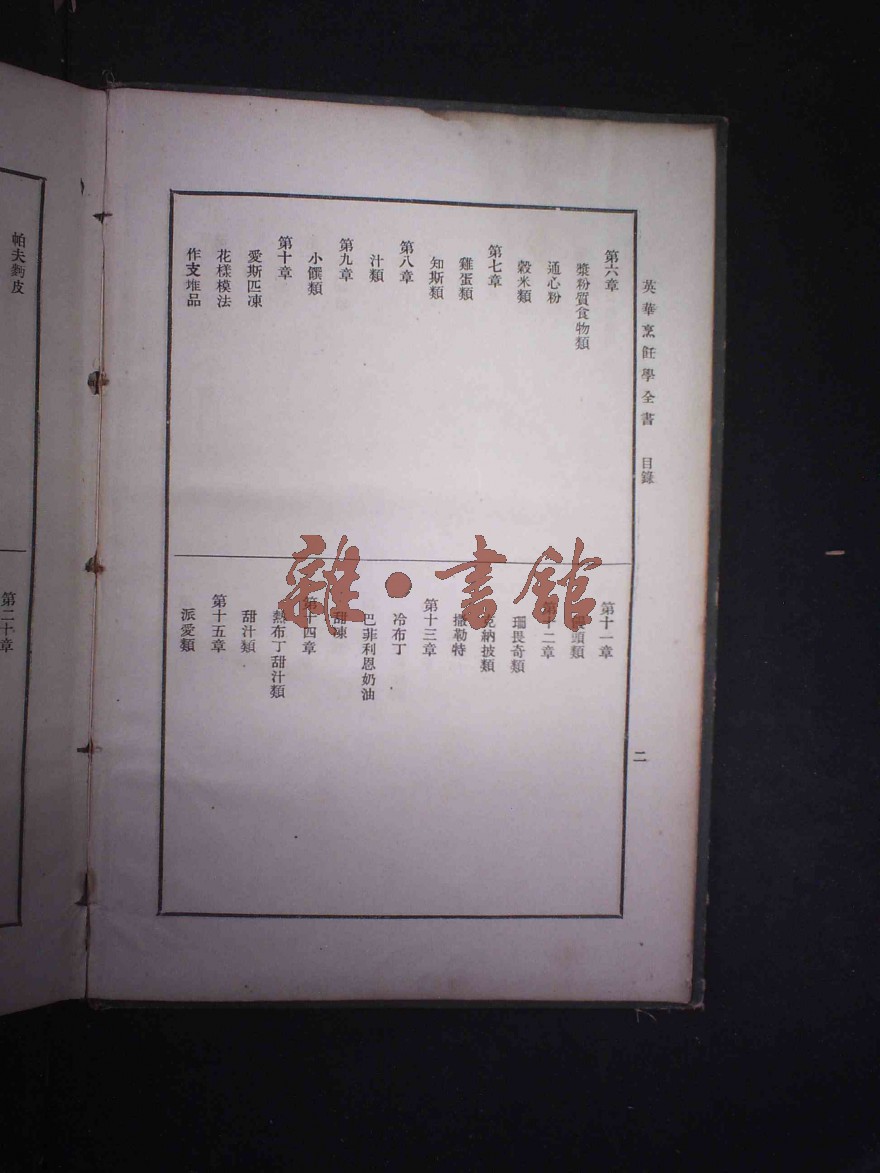 英華烹飪學全書 目錄
二
第六章
漿粉質食物類
通心粉
穀米類
第七章
雞蛋類
知斯類
第八章
汁類
第九章
小饌類
第十章
愛斯匹凍
花樣模法
作支堆品
第十一章
饅頭類
第十二章
珊畏奇類
克納披類
撒勒特
第十三章
冷布丁
巴菲利恩奶油
甜凍
第十四章
熱布丁甜汁類
甜汁類
第十五章
派愛類
雜·書館
帕夫麪皮
第二十章